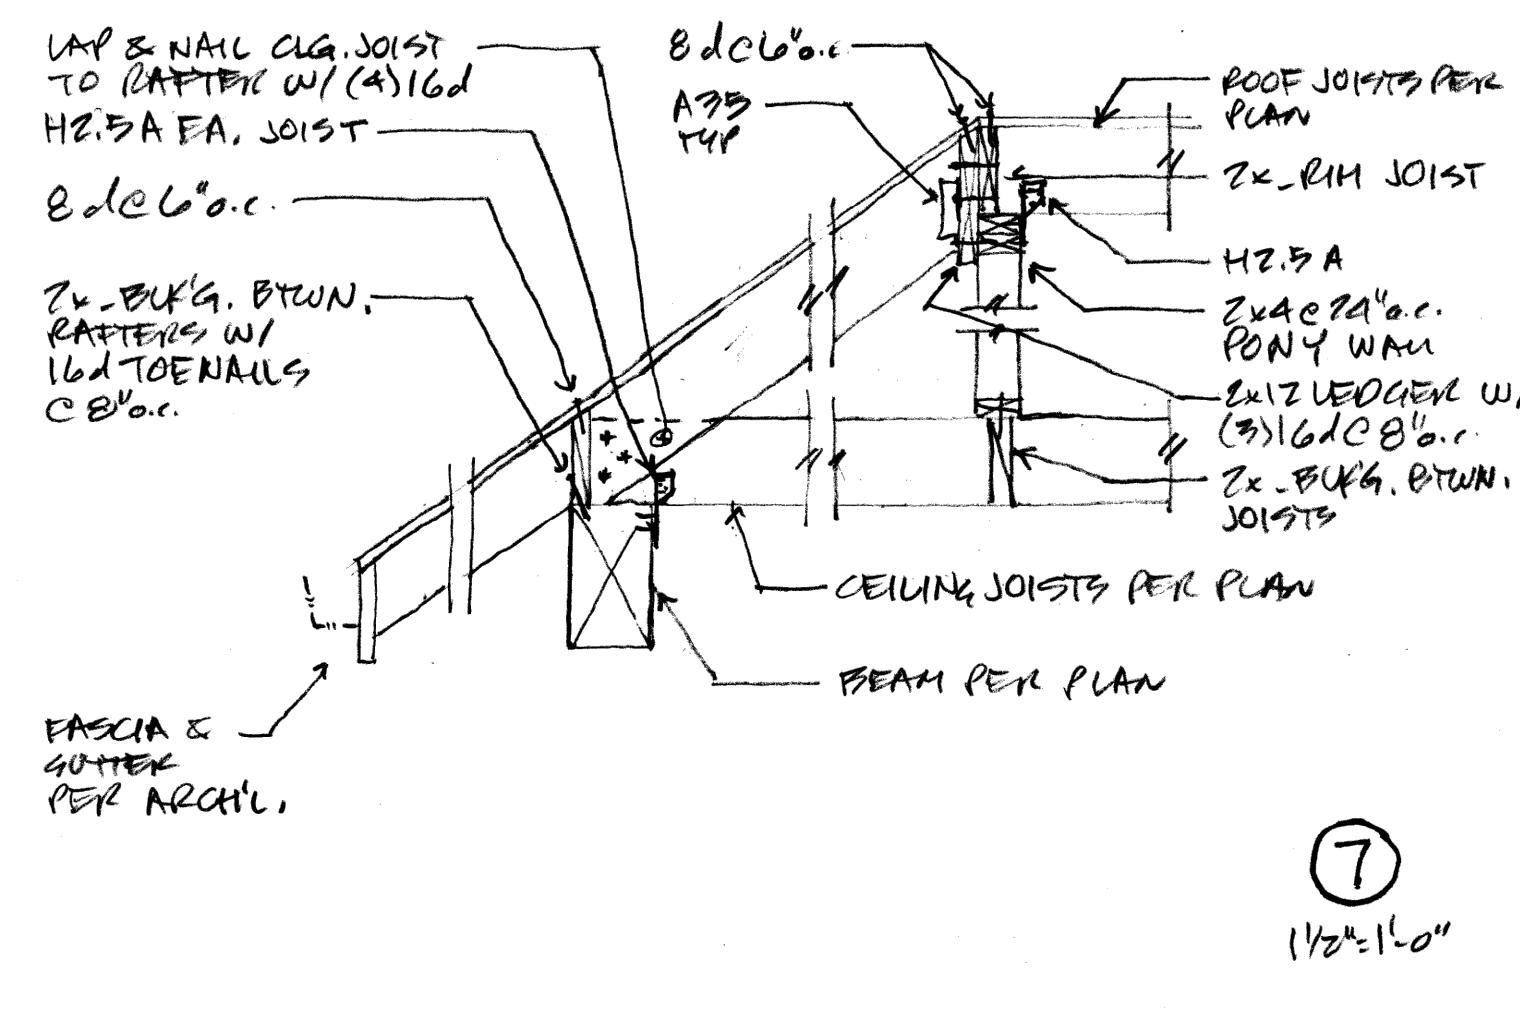 LAP & NAIL CLG. JOIST
TO RAFTER W/ (4)16d
H2.5A EA. JOIST
8d@6"o.c.
2x_BLK'G. BTWN.
RAFTERS W/
16d TOENAILS
@ 8"o.c.
FASCIA &
GUTTER
PER ARCH'L.
8d@6"o.c.
A35
TYP
ROOF JOISTS PER
PLAN
2x_RIM JOIST
H2.5A
2x4@24"o.c.
PONY WALL
2x12 LEDGER W/
(3)16d@8"o.c.
2x_BLK'G. BTWN.
JOISTS
CEILING JOISTS PER PLAN
BEAM PER PLAN
7
1 1/2"=1'-0"